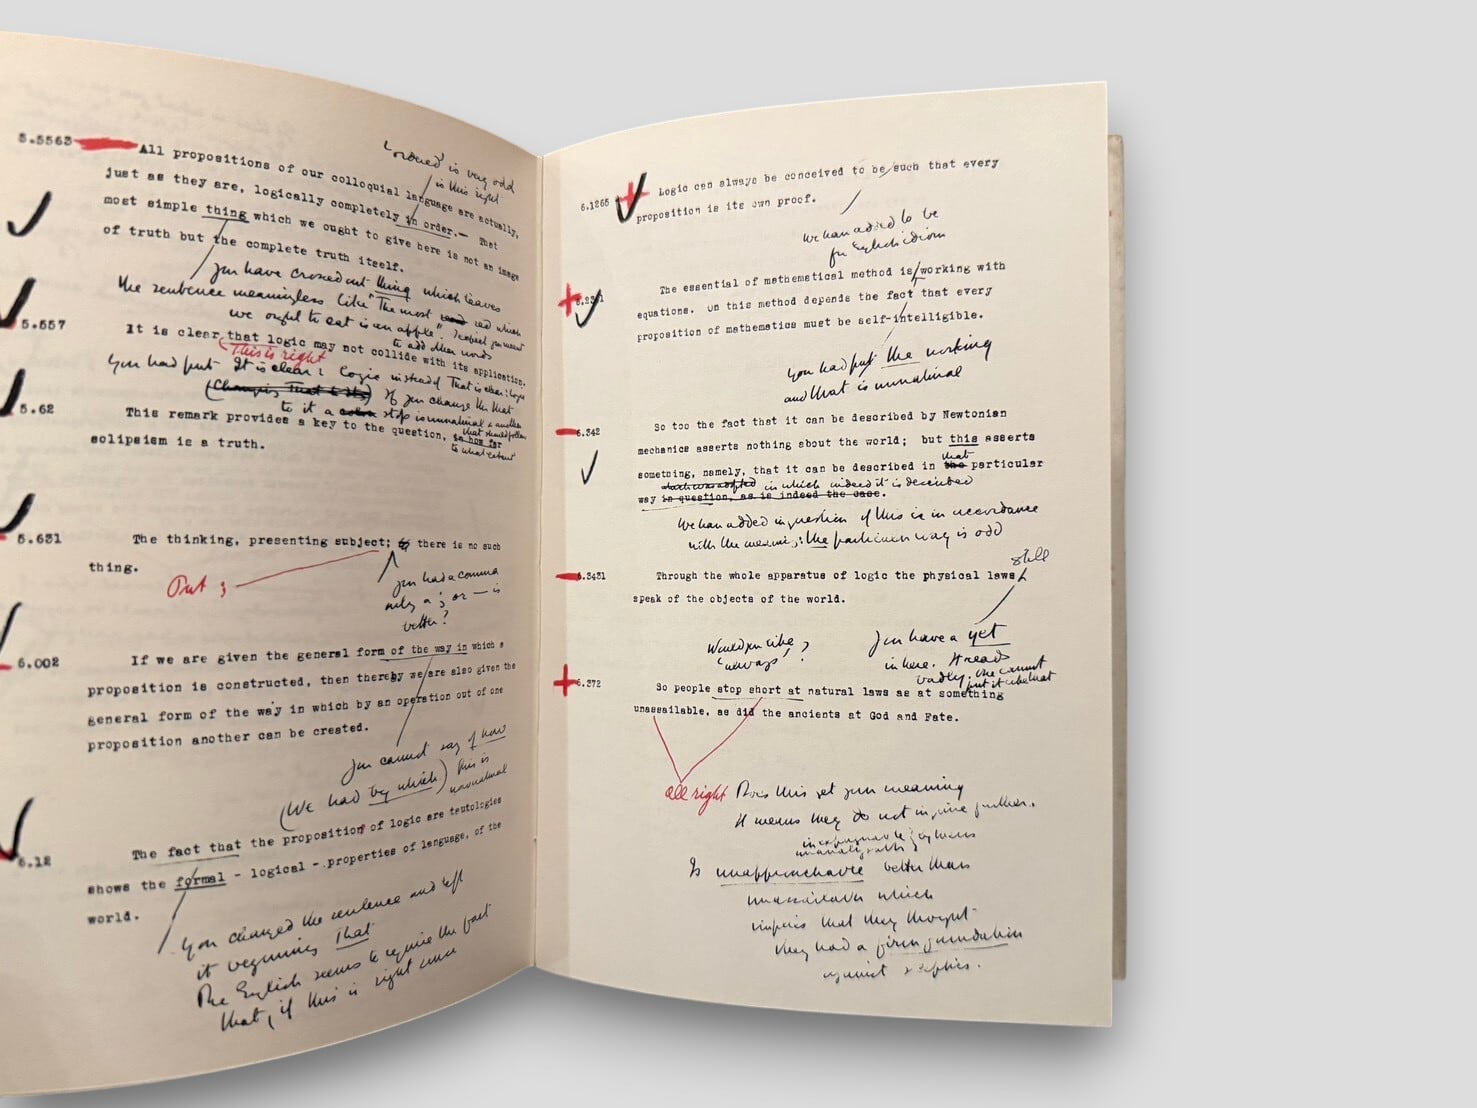 5.5563 All propositions of our colloquial language are actually,
just as they are, logically completely in order.— That
most simple thing which we ought to give here is not an image
of truth but the complete truth itself.
ordered is very odd
is this right
you have crossed out thing which leaves
the sentence meaningless like "The most red which
we ought to eat is an apple". I expect you meant
to add other words
5.557
It is clear that logic may not collide with its application.
This is right
You had put It is clear: logic instead That is clear: logic
(Changing That to It) If you change the that
to it a colon stop is unnatural & another
that should follow
5.62
This remark provides a key to the question, in how far
to what extent
solipsism is a truth.
5.631 The thinking, presenting subject; there is no such
thing.
Put ;
you had a comma
only a ; or — is
better?
6.002 If we are given the general form of the way in which a
proposition is constructed, then thereby we are also given the
general form of the way in which by an operation out of one
proposition another can be created.
You cannot say of how
(We had by which) this is
unnatural
6.12
The fact that the proposition of logic are tautologies
shows the formal - logical - properties of language, of the
world.
You changed the sentence and left
it beginning That
The English seems to require the fact
that, if this is right
6.1265 Logic can always be conceived to be such that every
proposition is its own proof.
We have added to be
for English idiom
6.2341
The essential of mathematical method is working with
equations. On this method depends the fact that every
proposition of mathematics must be self-intelligible.
You had put the working
and that is unnatural
6.342
So too the fact that it can be described by Newtonian
mechanics asserts nothing about the world; but this asserts
something, namely, that it can be described in the particular
that
which was adopted in which indeed it is described
way in question, as is indeed the case.
We have added in question if this is in accordance
with the meaning; the particular way is odd
6.3431 Through the whole apparatus of logic the physical laws
still
speak of the objects of the world.
Would you like
'always'?
You have a yet
in here. It reads
badly. One cannot
put it like that
6.372
So people stop short at natural laws as at something
unassailable, as did the ancients at God and Fate.
all right Does this get your meaning
It means they do not inquire further.
Is unapproachable better than
unassailable which
implies that they thought
they had a firm foundation
against sceptics.